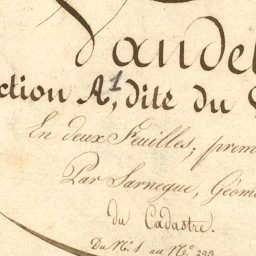 Vandel
ction A1, dite du
En deux Feuilles; prem
Par Larnegue, Géom
du Cadastre.
Du N.º 1 au N.º 299